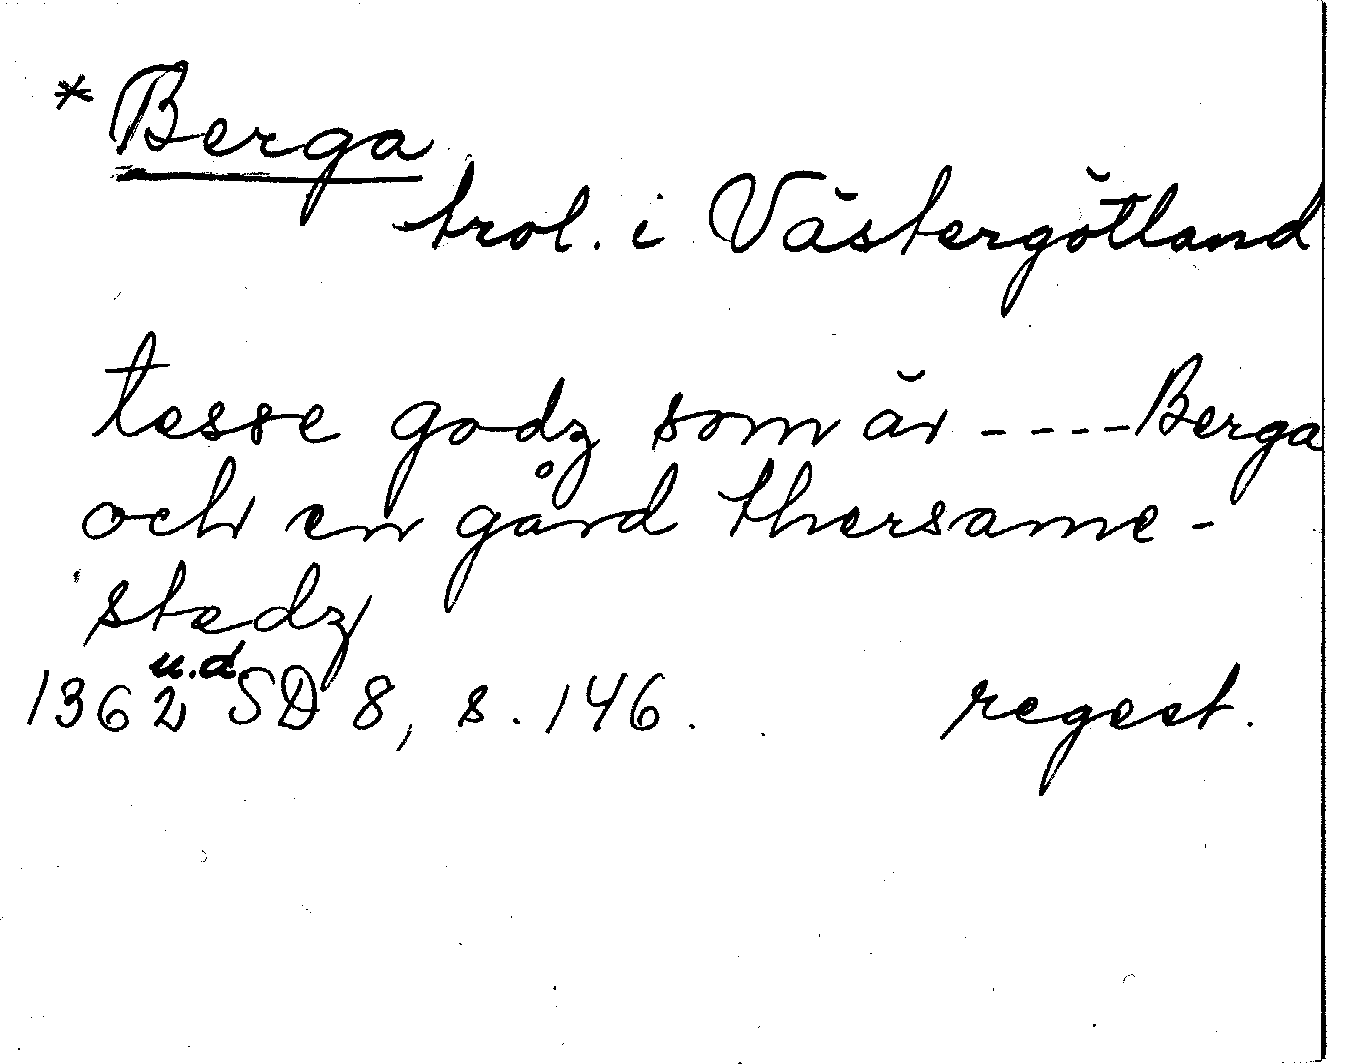 * Berga
trol. i Västergötland
tesse godz som är ---- Berga
och en gård thersame-
stedz
1362 u.d. SD 8, s. 146. regest.